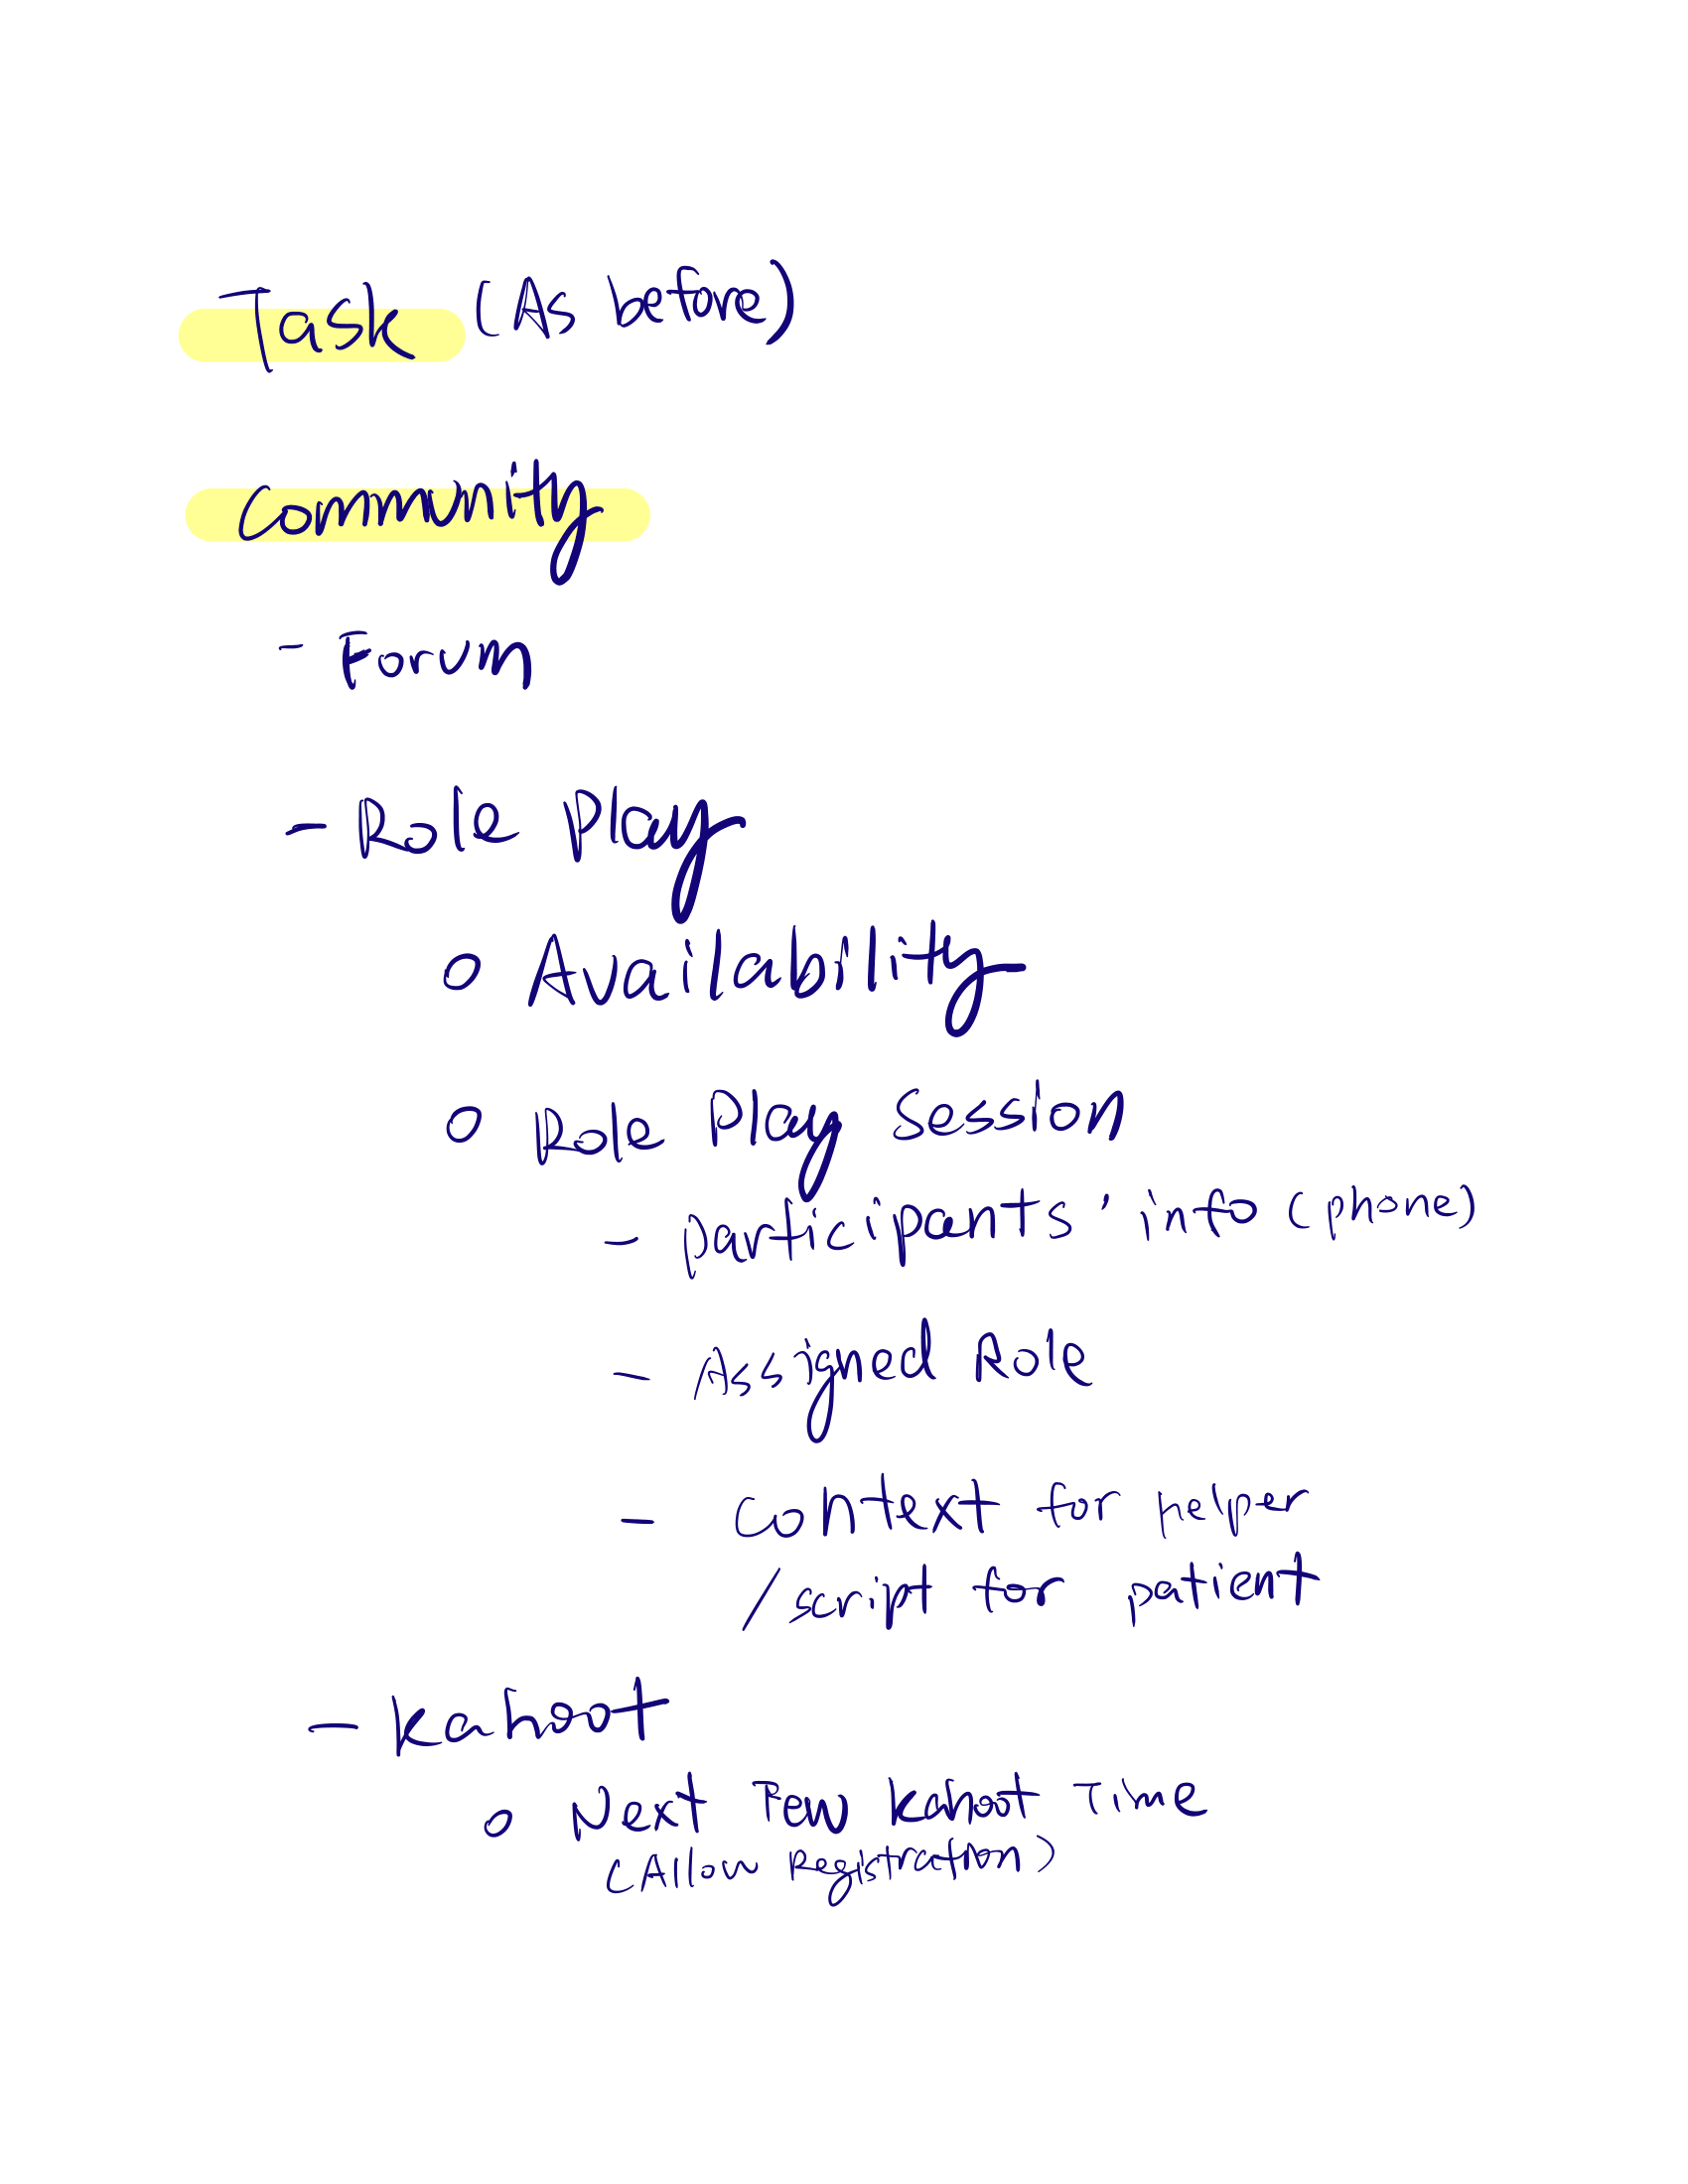 Task (As before)
Community
- Forum
- Role Play
o Availability
o Role Play Session
- participants' info (phone)
- Assigned Role
- Context for helper
/script for patient
- Kahoot
o Next Few Kahoot Time
(Allow Registration)